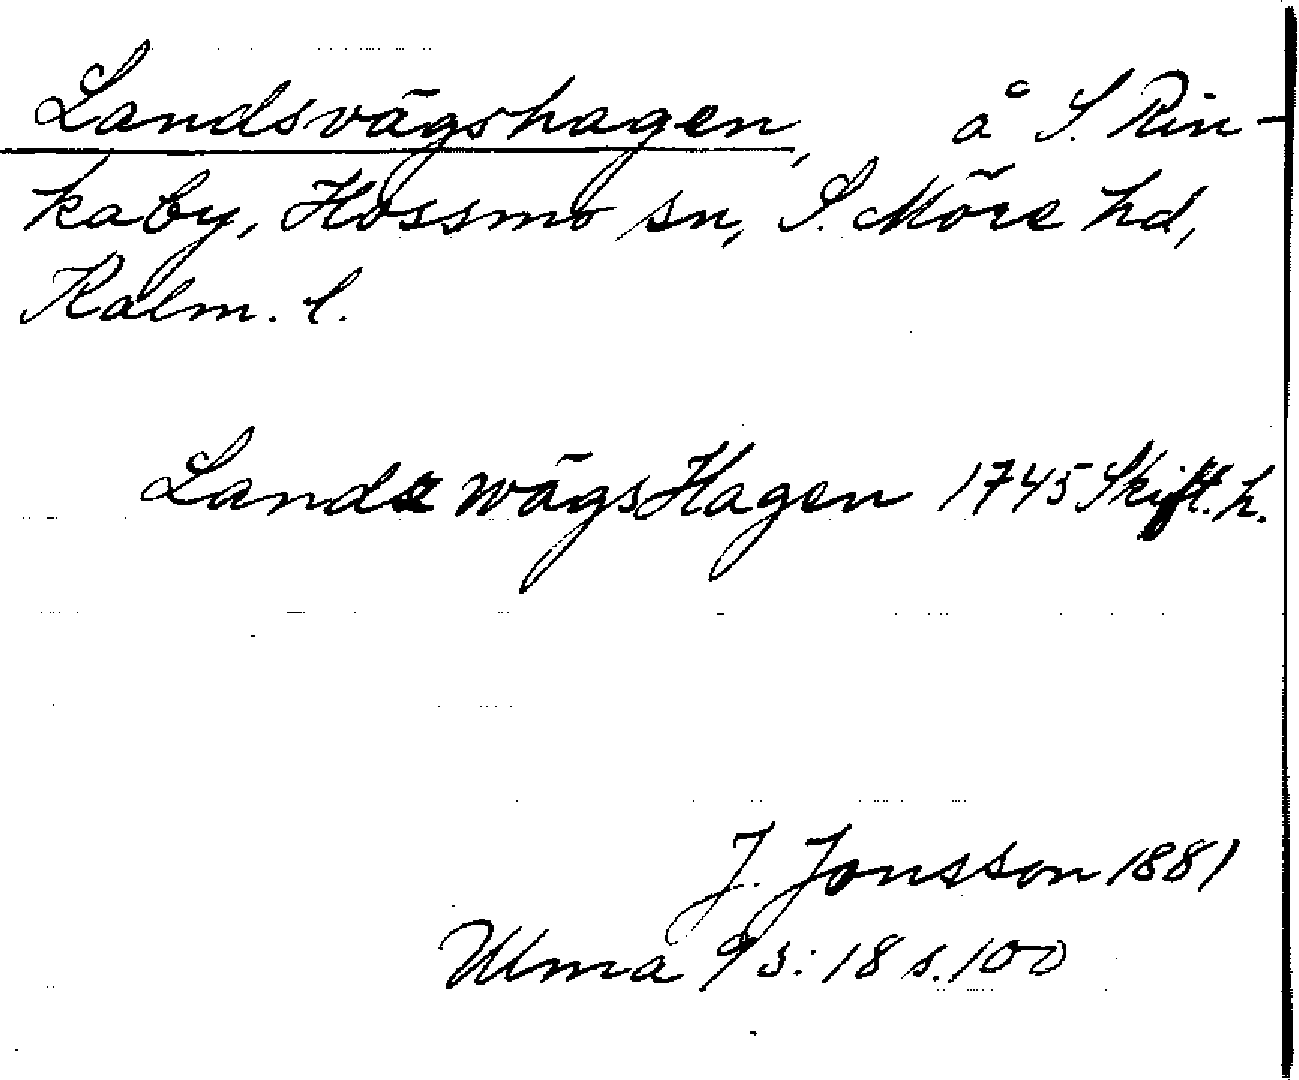 Landsvägshagen, å S. Rin-
kaby, Hossmo sn, S. Möre hd,
Kalm. l.
Lands wägsHagen 1745 Skift. h.
J. Jonsson 1881
Ulma 9 s: 18 s. 100